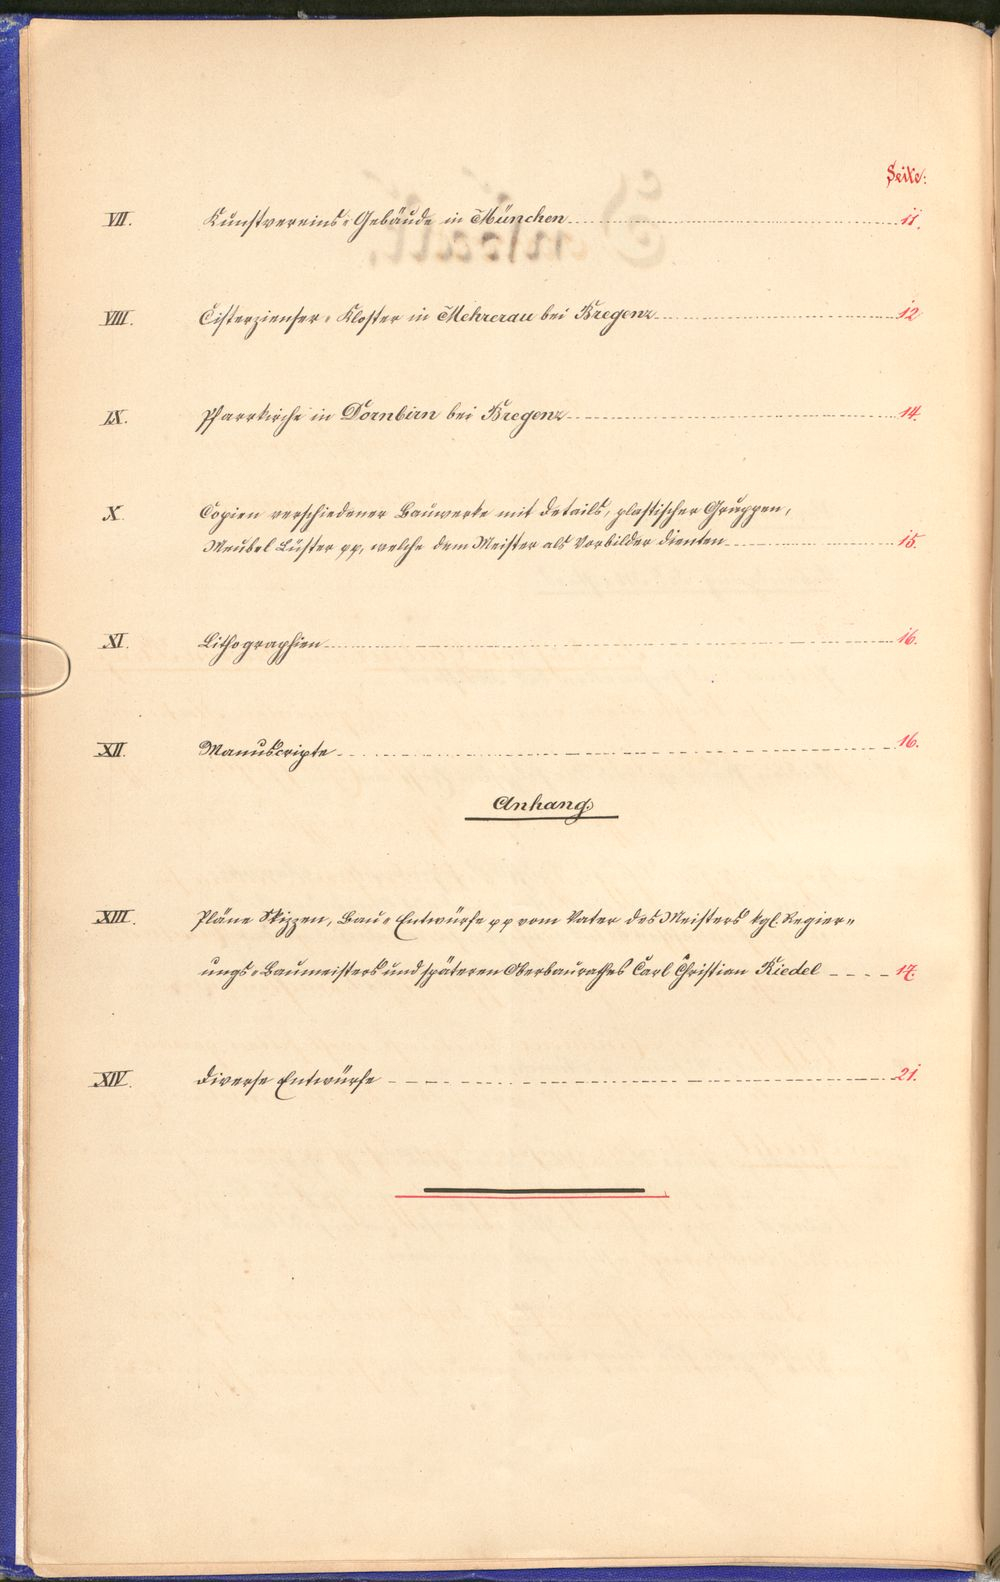 Seite:
VII. Kunstvereins-Gebäude in München 11.
VIII. Cisterzienser-Kloster in Mehrerau bei Bregenz 12
IX. Pfarrkirche in Dornbirn bei Bregenz 14.
X. Copien verschiedener Bauwerke mit Details, plastischer Gruppen,
Meubel Lüster pp, welche dem Meister als Vorbilder dienten 15.
XI. Lithographien 16.
XII. Manuscripte 16.
Anhang.
XIII. Pläne Skizzen, Bau-Entwürfe pp vom Vater des Meisters kgl. Regier-
ungs-Baumeisters und späteren Oberbaurathes Carl Christian Riedel 17.
XIV. Diverse Entwürfe 21.